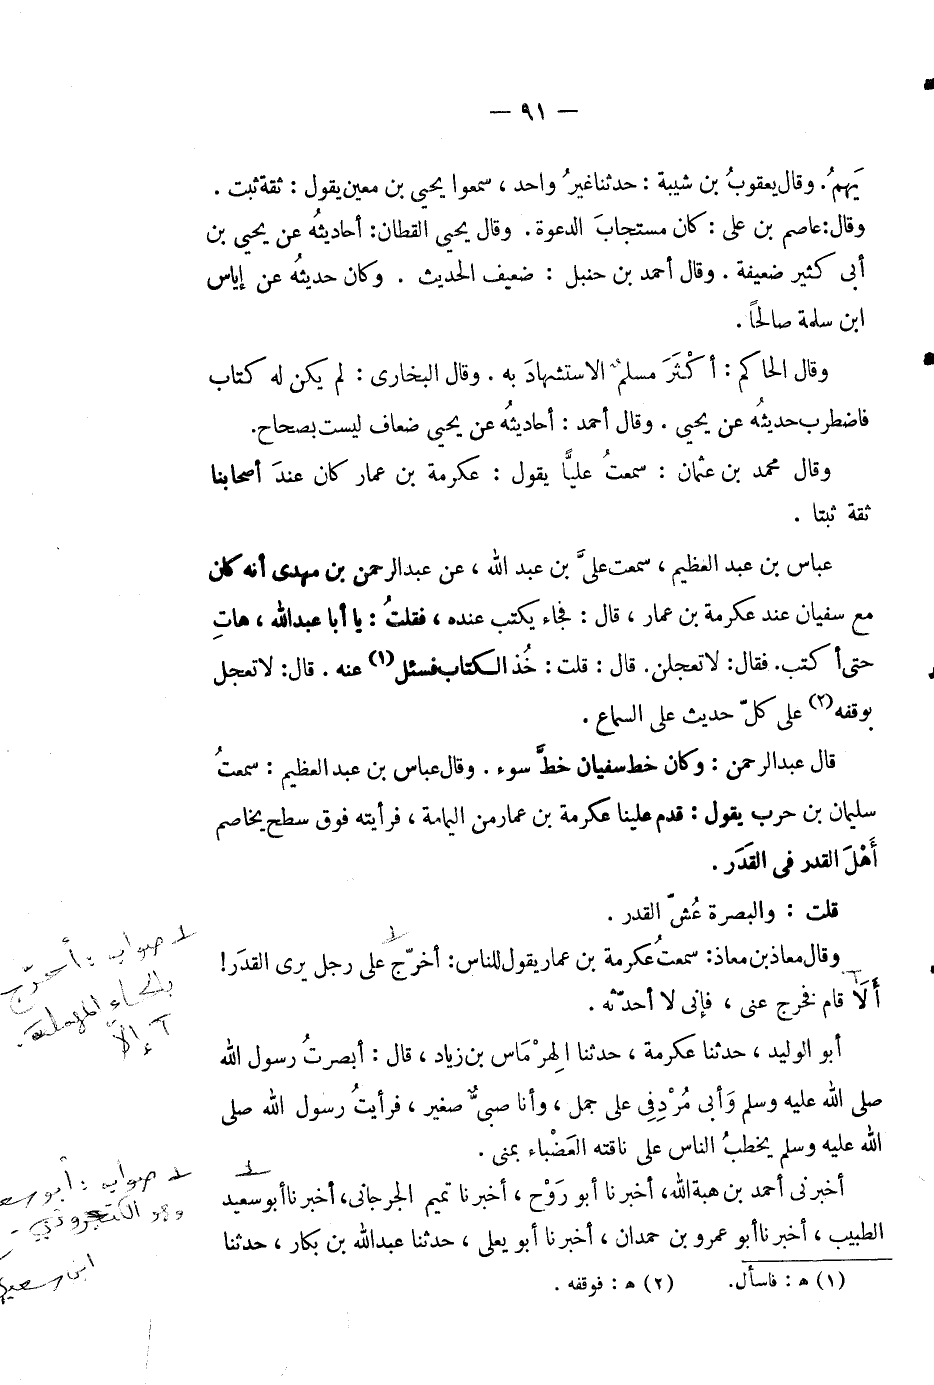 — ٩١ —
يَهِمُ. وقال يعقوبُ بن شيبة : حدثنا غيرُ واحد ، سمعوا يحيى بن معين يقول : ثقة ثبت .
وقال: عاصم بن على : كان مستجابَ الدعوة. وقال يحيى القطان: أحاديثُه عن يحيى بن
أبى كثير ضعيفة . وقال أحمد بن حنبل : ضعيف الحديث . وكان حديثُه عن إياس
ابن سلمة صالحاً .
وقال الحاكم : أكْثَرَ مسلمٌ الاستشهادَ به . وقال البخارى : لم يكن له كتاب
فاضطرب حديثُه عن يحيى . وقال أحمد : أحاديثُه عن يحيى ضعاف ليست بصحاح.
وقال محمد بن عثمان : سمعتُ عليًّا يقول : عكرمة بن عمار كان عندَ أصحابنا
ثقة ثبتا .
عباس بن عبد العظيم ، سمعت علىَّ بن عبد الله ، عن عبدالرحمن بن مهدى أنه كان
مع سفيان عند عكرمة بن عمار ، قال : فجاء يكتب عنده ، فقلتُ : يا أبا عبدالله ، هاتِ
حتى أكتب. فقال: لاتعجلن. قال : قلت : خُذ الكتاب فسئل(١) عنه . قال: لاتعجل
بوقفه(٢) على كلّ حديث على السماع .
قال عبدالرحمن : وكان خط سفيان خطَّ سوء . وقال عباس بن عبد العظيم : سمعتُ
سليمان بن حرب يقول : قدم علينا عكرمة بن عمار من اليمامة ، فرأيته فوق سطح يخاصم
أَهْلَ القدر فى القَدَر .
قلت : والبصرة عُشّ القدر .
وقال معاذ بن معاذ: سمعتُ عكرمة بن عمار يقول للناس: أخرّج على رجل يرى القدَر!
أَلَا قام فخرج عنى ، فإنى لا أحدّثه .
أبو الوليد ، حدثنا عكرمة ، حدثنا الهِرْمَاس بن زياد ، قال : أبصرتُ رسول الله
صلى الله عليه وسلم وَأبى مُرْدِفِى على جمل ، وأنا صبىٌّ صغير ، فرأيتُ رسول الله صلى
الله عليه وسلم يخطبُ الناس على ناقته العَضْباء بمنى .
أخبرنى أحمد بن هبة الله، أخبرنا أبو رَوْح ، أخبرنا تميم الجرجانى، أخبرنا أبو سعيد
الطبيب ، أخبرنا أبو عمرو بن حمدان ، أخبرنا أبو يعلى ، حدثنا عبدالله بن بكار ، حدثنا
(١) ھ : فاسأل. (٢) ھ : فوقفه .
صواب : أحرّج
بالحاء المهملة .
إلّا
صواب : أبو سعد
وهو الكنجروذي -
ابن سعيد